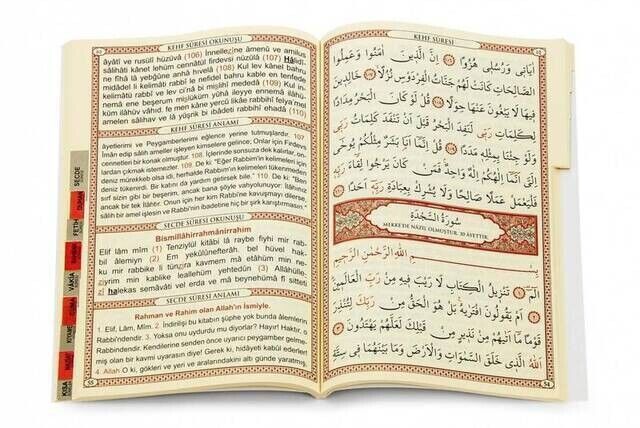 KEHF SÛRESİ OKUNUŞU
âyâtî ve rusulî hüzüvâ (106) İnnellezîne âmenû ve amilus
sâlihâti kânet lehüm cennâtül firdevsi nüzülâ (107) Hâlidî-
ne fîhâ lâ yebğûne anhâ hıvelâ (108) Kul lev kânel bahru
midâdel li kelimâti rabbî le nefidel bahru kable en tenfede
kelimâtü rabbî ve lev ci'nâ bi mislihî mededâ (109) Kul in-
nemâ ene beşerum mislüküm yûhâ ileyye ennemâ ilâhü-
küm ilâhüv vâhid, fe men kâne yercû likâe rabbihî felya'mel
amelen sâlihav ve lâ yüşrik bi ibâdeti rabbihî ehadâ (110)
KEHF SÛRESİ ANLAMI
âyetlerimi ve Peygamberlerimi eğlence yerine tutmuşlardır. 107
İman edip sâlih ameller işleyen kimselere gelince; Onlar için Firdevs
cennetleri bir konak olmuştur. 108. İçlerinde sonsuza dek kalırlar, on-
lardan çıkmak istemezler. 109. De ki: "Eğer Rabbim'in kelimeleri için
deniz mürekkeb olsa idi, herhalde Rabbim'in kelimeleri tükenmeden
deniz tükenirdi. Bir katını da yardım getirsek bile." 110. De ki: "Ben
sırf sizin gibi bir beşerim, ancak bana şöyle vahyolunuyor: İlâhınız
ancak bir tek İlâhtır. Onun için her kim Rabbi'ne kavuşmayı dilerse,
sâlih bir amel işlesin ve Rabbi'nin ibâdetine hiç bir şirk karıştırmasın."
SECDE SÛRESİ OKUNUŞU
Bismillâhirrahmânirrahîm
Elif lâm mîm (1) Tenzîylül kitâbi lâ raybe fîyhi mir rab-
bil âlemiyn (2) Em yekûlûnefterâh, bel hüvel hak-
ku mir rabbike li tünzira kavmem mâ etâhüm min ne-
ziyrim min kablike leallehüm yehtedûn (3) Allâhülle-
zî halekas semâvâti vel erda ve mâ beynehümâ fî sitteti
SECDE SÛRESİ ANLAMI
Rahman ve Rahim olan Allah'ın İsmiyle.
1. Elif, Lâm, Mîm. 2. İndirilişi bu kitabın şüphe yok bunda âlemlerin
Rabbi'ndendir. 3. Yoksa onu uydurdu mu diyorlar? Hayır! Haktır, o
Rabbi'ndendir. Kendilerine senden önce uyarıcı peygamber gelme-
miş olan bir kavmi uyarasın diye! Gerek ki, hidâyeti kabûl ederler!
4. Allah O ki, gökleri ve yeri ve aralarındakini altı günde yaratmış,
SECDE
DUHAN
FETİH
VÂKIA
KEHF SÛRESİ
اٰيَاتٖى وَرُسُلٖى هُزُوًا ﴿١٠٦﴾ اِنَّ الَّذٖينَ اٰمَنُوا وَعَمِلُوا
الصَّالِحَاتِ كَانَتْ لَهُمْ جَنَّاتُ الْفِرْدَوْسِ نُزُلًا ﴿١٠٧﴾ خَالِدٖينَ
فٖيهَا لَا يَبْغُونَ عَنْهَا حِوَلًا ﴿١٠٨﴾ قُلْ لَوْ كَانَ الْبَحْرُ مِدَادًا
لِكَلِمَاتِ رَبّٖى لَنَفِدَ الْبَحْرُ قَبْلَ اَنْ تَنْفَدَ كَلِمَاتُ رَبّٖى
وَلَوْ جِئْنَا بِمِثْلِهٖ مَدَدًا ﴿١٠٩﴾ قُلْ اِنَّمَا اَنَا بَشَرٌ مِثْلُكُمْ يُوحٰى
اِلَىَّ اَنَّمَا اِلٰهُكُمْ اِلٰهٌ وَاحِدٌ فَمَنْ كَانَ يَرْجُوا لِقَاءَ رَبِّهٖ
فَلْيَعْمَلْ عَمَلًا صَالِحًا وَلَا يُشْرِكْ بِعِبَادَةِ رَبِّهٖ اَحَدًا ﴿١١٠﴾
سُورَةُ السَّجْدَةِ
MEKKE'DE NÂZİL OLMUŞTUR. 30 ÂYETTİR.
بِسْمِ اللّٰهِ الرَّحْمٰنِ الرَّحٖيمِ
الٓمٓ ﴿١﴾ تَنْزٖيلُ الْكِتَابِ لَا رَيْبَ فٖيهِ مِنْ رَبِّ الْعَالَمٖينَ
﴿٢﴾ اَمْ يَقُولُونَ افْتَرٰيهُ بَلْ هُوَ الْحَقُّ مِنْ رَبِّكَ لِتُنْذِرَ
قَوْمًا مَا اَتٰيهُمْ مِنْ نَذٖيرٍ مِنْ قَبْلِكَ لَعَلَّهُمْ يَهْتَدُونَ ﴿٣﴾
اَللّٰهُ الَّذٖى خَلَقَ السَّمٰوَاتِ وَالْاَرْضَ وَمَا بَيْنَهُمَا فٖى سِتَّةِ